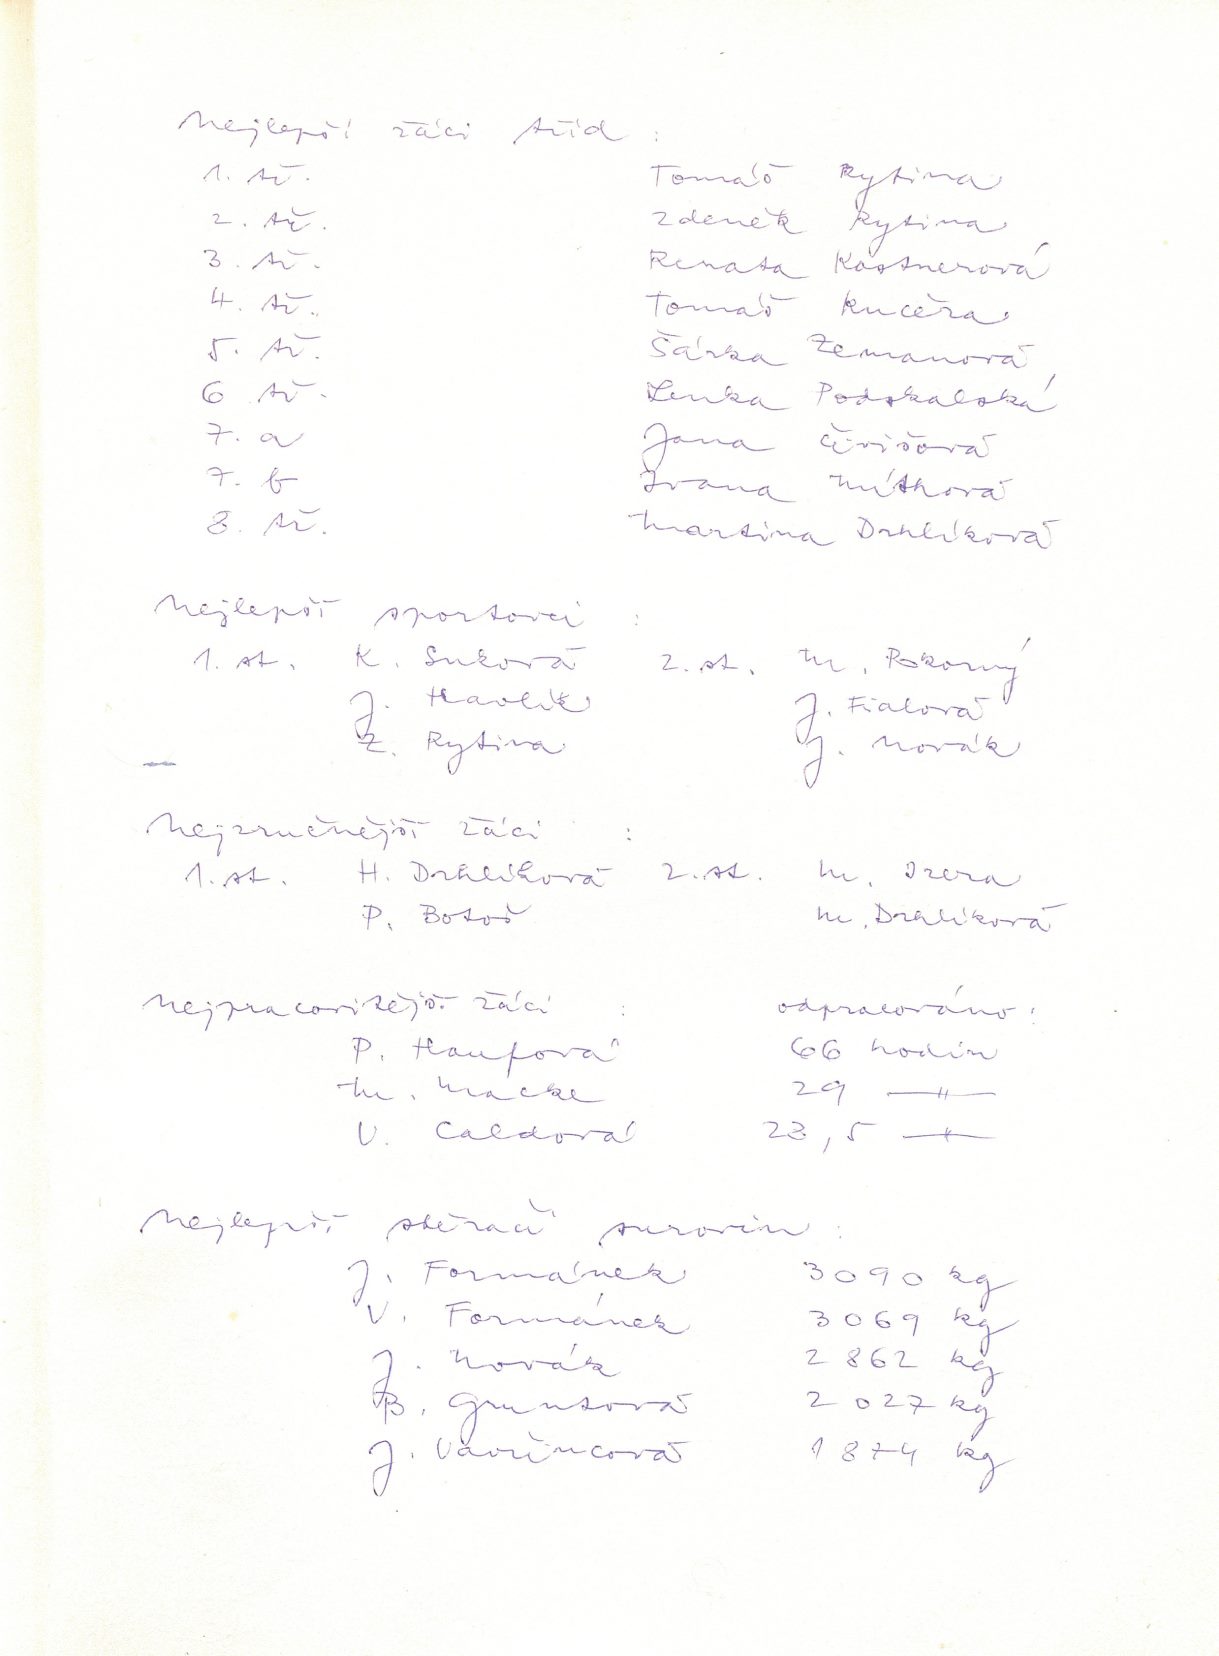 Nejlepší žáci tříd :
1. tř. Tomáš Rytina
2. tř. Zdeněk Rytina
3. tř. Renata Kastnerová
4. tř. Tomáš Kučera
5. tř. Šárka Zemanová
6 tř. Lenka Podskalská
7. a Jana Čivišová
7. b Ivana Míthová
8. tř. Martina Drhlíková
Nejlepší sportovci :
1. st. K. Suková 2. st. M. Pokorný
J. Havlík J. Fialová
Z. Rytina J. Novák
Nejzručnější žáci :
1. st. H. Drhlíková 2. st. M. Izera
P. Botoš M. Drhlíková
Nejpracovitější žáci : odpracováno :
P. Haufová 66 hodin
M. Macke 29 —"—
V. Caldová 23,5 —"—
Nejlepší sběrači surovin :
J. Formánek 3090 kg
V. Formánek 3069 kg
J. Novák 2 862 kg
B. Gruntová 2 027 kg
J. Vavřincová 1 874 kg